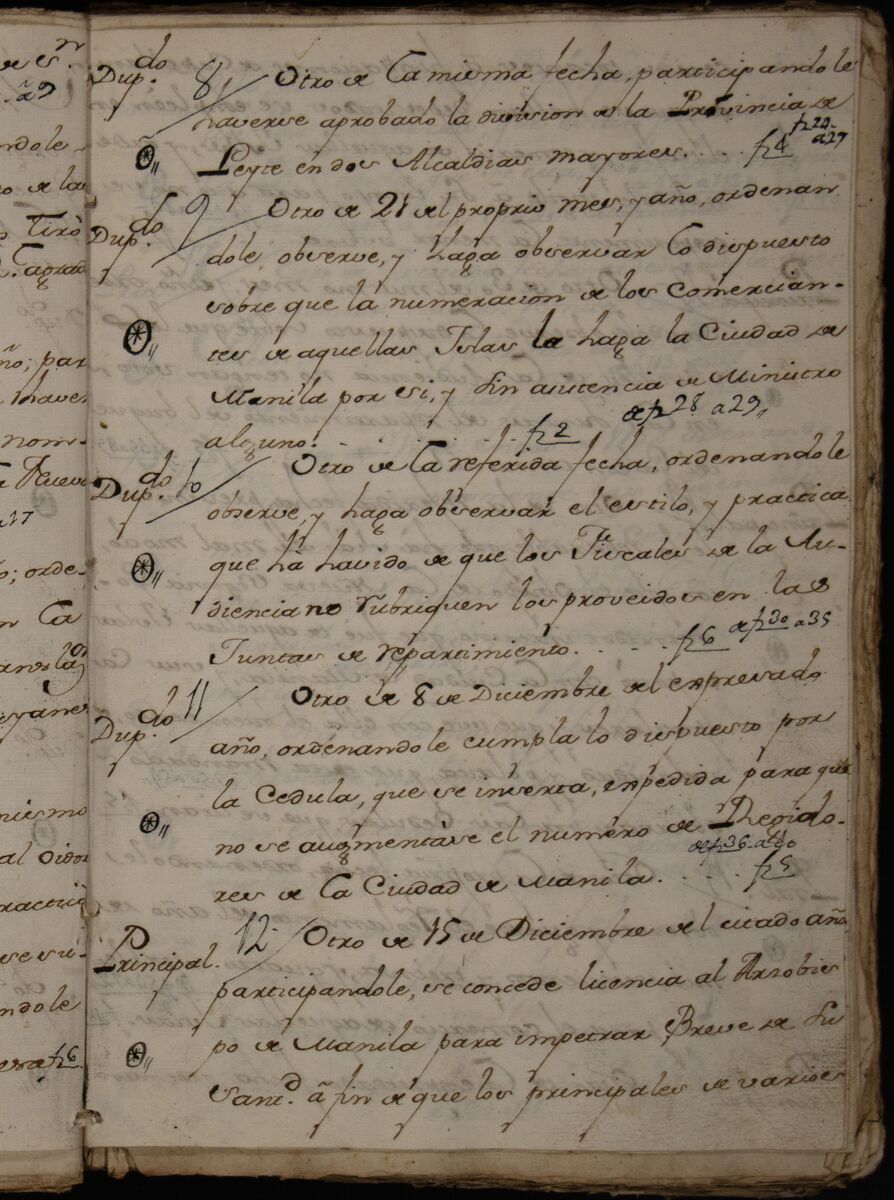 Dup.do 8 Otro de la misma fecha, participandole
haverse aprobado la division de la Provincia de
Leyte en dos Alcaldias mayores. . . f4 f 24 a 27
Dup.do 9 Otro de 21 del proprio mes, y año, ordenan
dole observe, y haga observar lo dispuesto
sobre que la numeracion de los Comercian-
tes de aquellas Islas la haga la Ciudad de
Manila por si, y sin asistencia de Ministro
alguno. . . . f 2 de f 28 a 29,,
Dup.do 10 Otro de la referida fecha, ordenandole
observe, y haga observar el estilo, y practica
que há havido de que los Fiscales de la Au-
diencia no rubriquen los proveidos en las
Juntas de repartimiento. . . . f 6 de f 30 a 35
Dup.do 11 Otro de 8 de Diciembre del expresado
año, ordenandole cumpla lo dispuesto por
la Cedula, que se inserta, expedida para que
no se augmentáse el numero de Regido-
res de la Ciudad de Manila. . . . f 5 de f 36 a 40
Principal. 12 Otro de 15 de Diciembre del citado año
participandole, se concede licencia al Arzobis
po de Manila para impetrar Breve de Su
Santd. â fin de que los principales de varios
ndole
o de la
Tiro
ño; par
haver
nom-
a 27
o; orde-
n la
mismo
al oidor
se su-
ndole
f 6